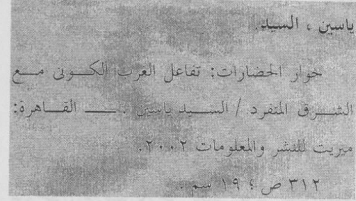 ياسين ، السيد.
حوار الحضارات: تفاعل الغرب الكونى مع
الشرق المتفرد / السيد ياسين . ــ القاهرة:
ميريت للنشر والمعلومات ٢٠٠٢.
٣١٢ ص ؛ ١٩ سم .